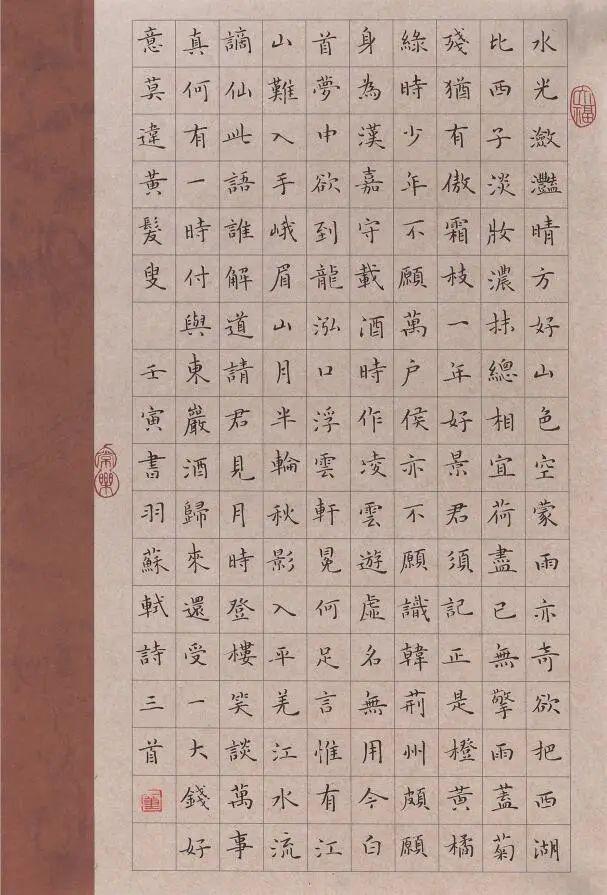 水光瀲灩晴方好山色空蒙雨亦奇欲把西湖
比西子淡妝濃抹總相宜荷盡已無擎雨蓋菊
殘猶有傲霜枝一年好景君須記正是橙黃橘
綠時少年不願萬戶侯亦不願識韓荊州頗願
身為漢嘉守載酒時作凌雲遊虛名無用今白
首夢中欲到龍泓口浮雲軒冕何足言惟有江
山難入手峨眉山月半輪秋影入平羌江水流
謫仙此語誰解道請君見月時登樓笑談萬事
真何有一時付與東巖酒歸來還受一大錢好
意莫違黃髮叟 壬寅書羽蘇軾詩三首
常樂